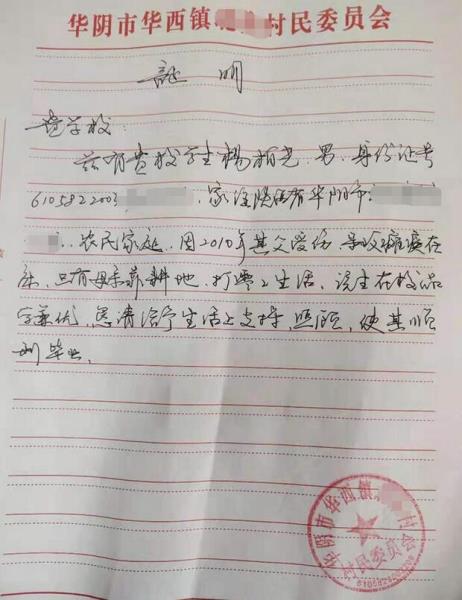 华阴市华西镇 村民委员会
証 明
学校
兹有贵校学生杨柏光, 男, 身份证号
6105822003 , 家住陕西省华阴市
农民家庭, 因2010年其父受伤 导致瘫痪在
床, 只有母亲靠耕地、打零工生活, 该生在校品
学兼优, 恳请给予生活上支持, 照顾, 使其顺
利毕业。
华阴市华西镇 村
村民委员会